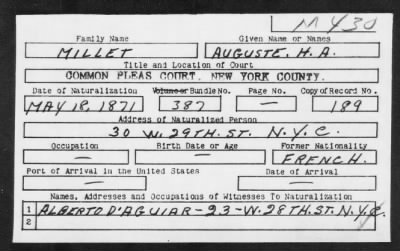 M430
Family Name Given Name or Names
MILLET AUGUSTE. H. A.
Title and Location of Court
COMMON PLEAS COURT. NEW YORK COUNTY.
Date of Naturalization Volume or Bundle No. Page No. Copy of Record No.
MAY 18, 1871 387 — 189
Address of Naturalized Person
30 W. 29TH. ST. N.Y.C.
Occupation Birth Date or Age Former Nationality
— — FRENCH.
Port of Arrival in the United States Date of Arrival
— —
Names, Addresses and Occupations of Witnesses To Naturalization
1 ALBERTO D'AGUIAR-23-W. 28TH. ST. N.Y.C.
2